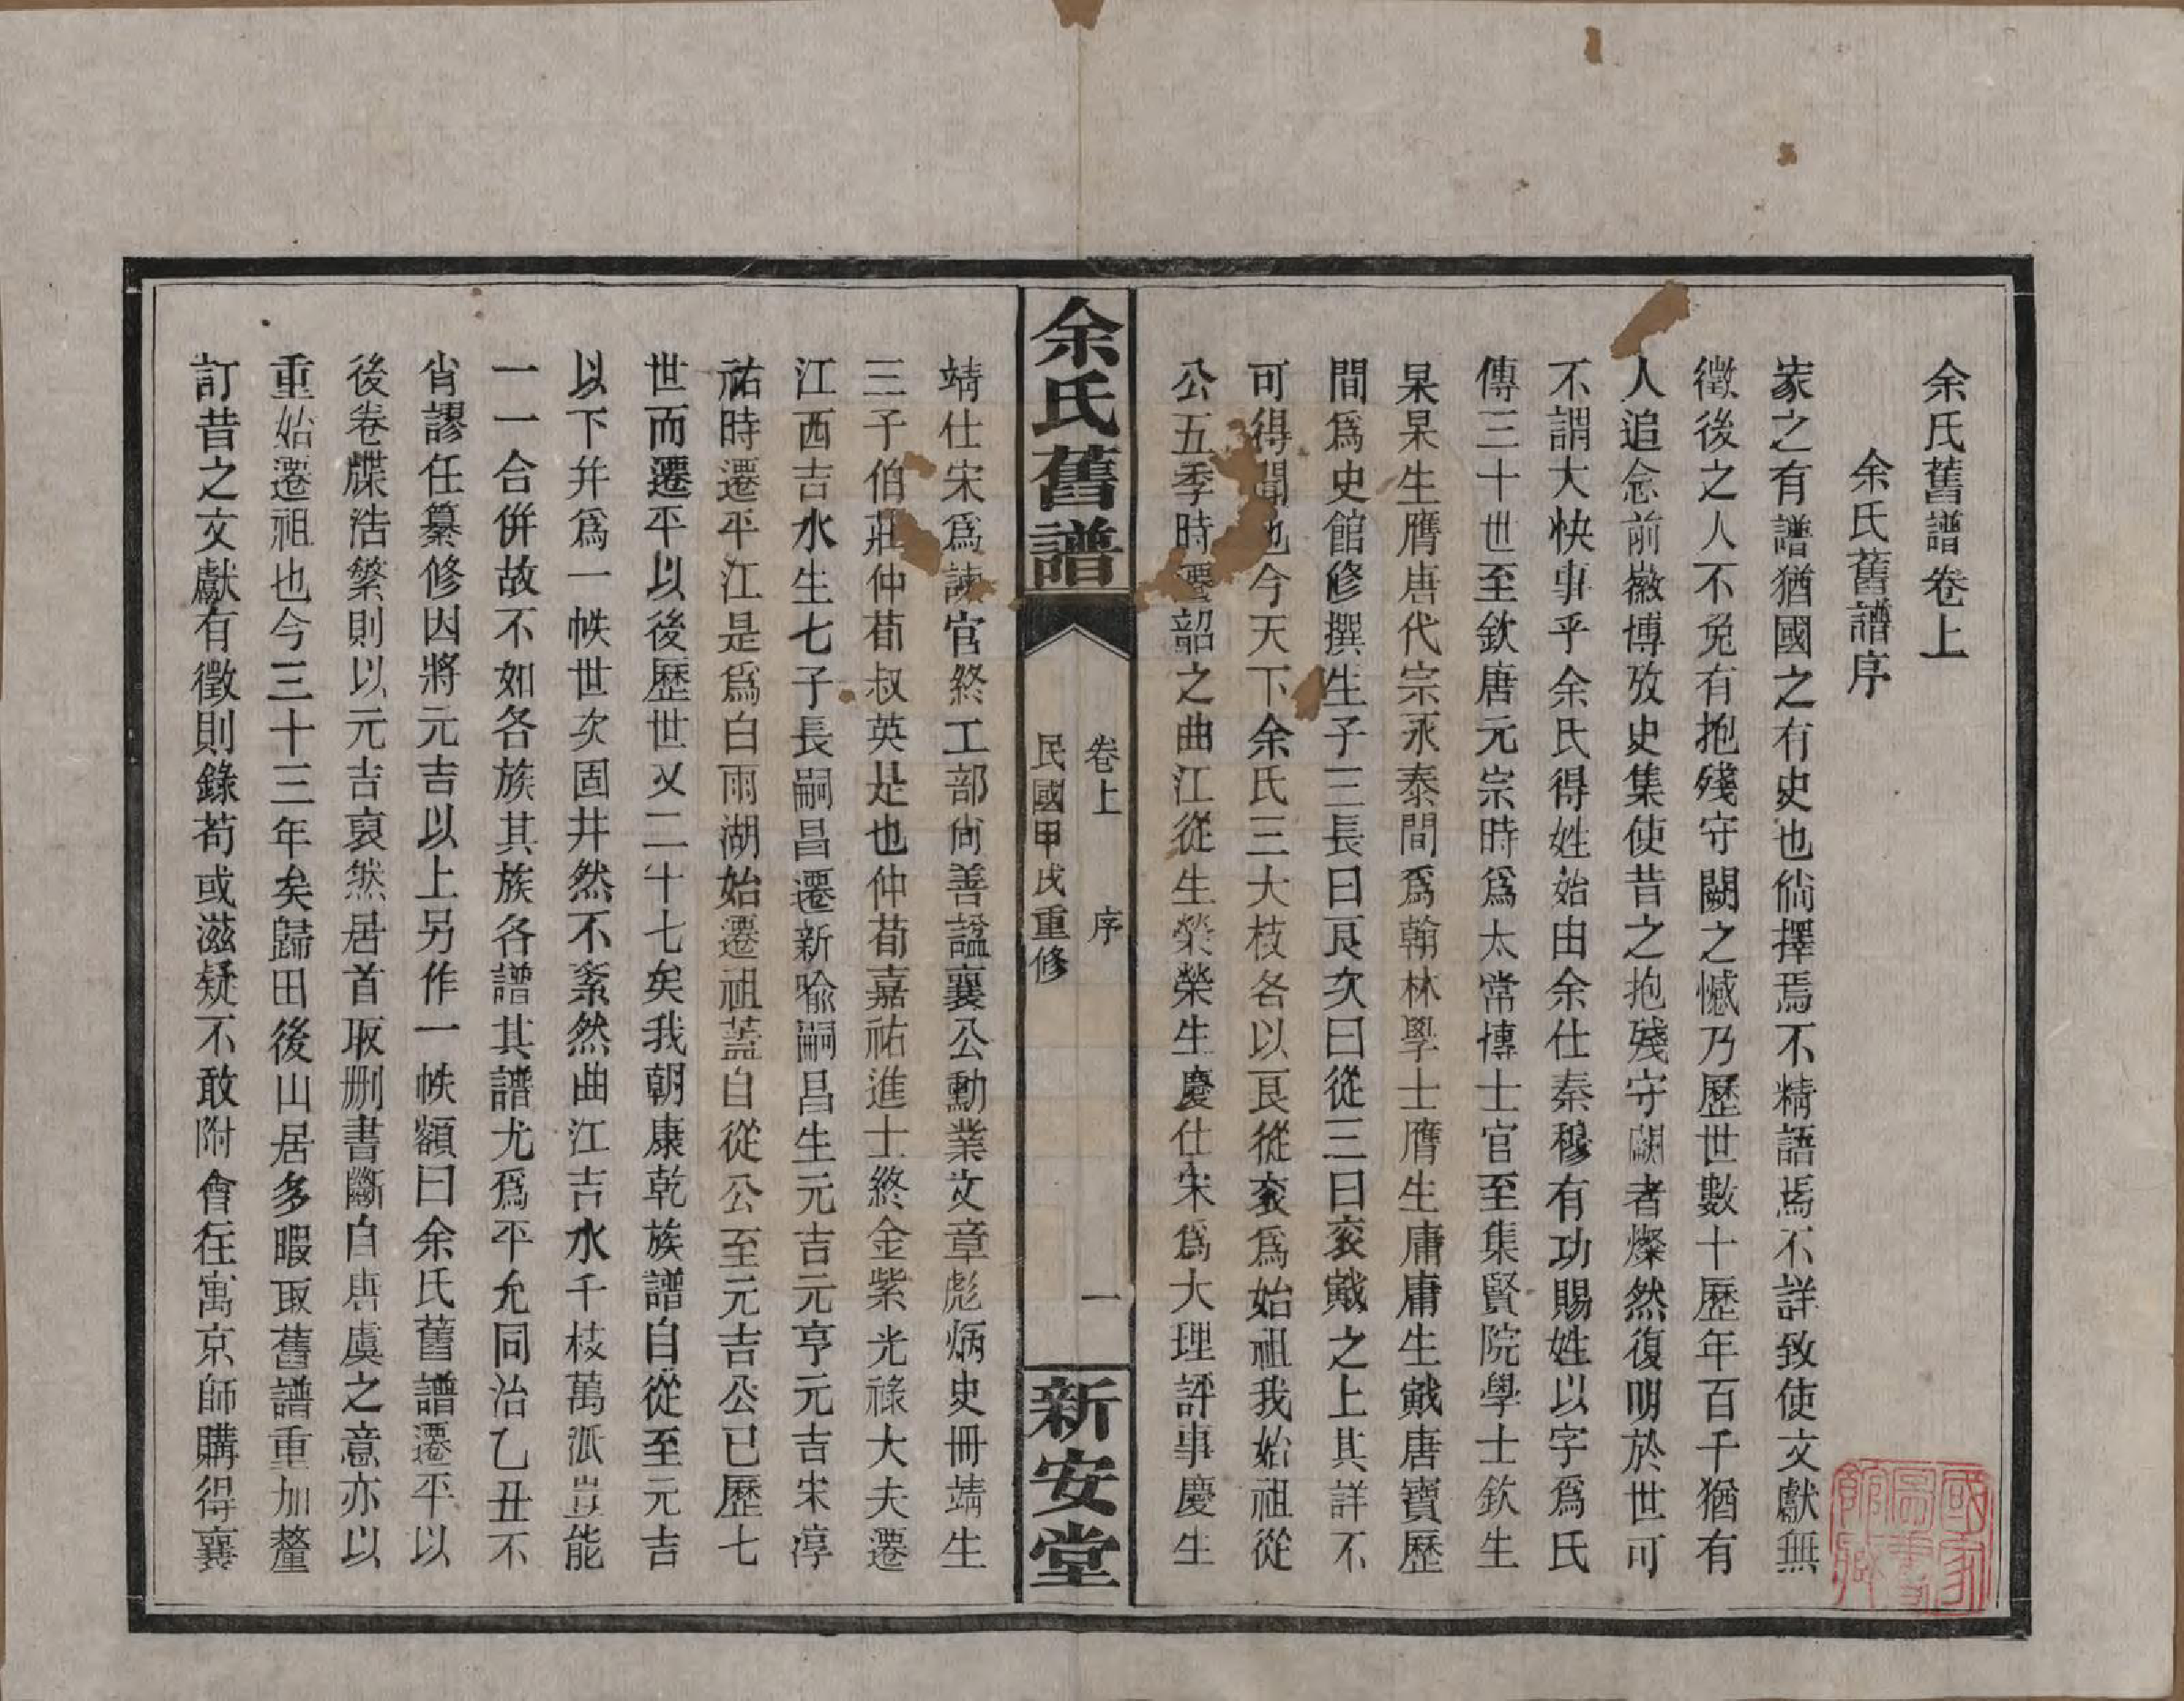 余氏舊譜卷上
余氏舊譜序
家之有譜猶國之有史也倘擇焉不精語焉不詳致使文獻無
徵後之人不免有抱殘守闕之憾乃歷世數十歷年百千猶有
人追念前徽博攷史集使昔之抱殘守闕者燦然復明於世可
不謂大快事乎余氏得姓始由余仕秦穆有功賜姓以字爲氏
傳三十世至欽唐元宗時爲太常博士官至集賢院學士欽生
杲杲生膺唐代宗永泰間爲翰林學士膺生庸庸生戭唐寶歷
間爲史館修撰生子三長曰艮次曰從三曰袤戭之上其詳不
可得聞也今天下余氏三大枝各以艮從袤爲始祖我始祖從
公五季時遷韶之曲江從生榮榮生慶仕宋爲大理評事慶生
余氏舊譜
卷上 序 一
民國甲戌重修
新安堂
靖仕宋爲諫官終工部尙書諡襄公勳業文章彪炳史冊靖生
三子伯莊仲荀叔英是也仲荀嘉祐進士終金紫光祿大夫遷
江西吉水生七子長嗣昌遷新喻嗣昌生元吉元亨元吉宋淳
祐時遷平江是爲白雨湖始遷祖蓋自從公至元吉公已歷七
世而遷平以後歷世又二十七矣我朝康乾族譜自從至元吉
以下幷爲一帙世次固井然不紊然曲江吉水千枝萬派豈能
一一合併故不如各族其族各譜其譜尤爲平允同治乙丑不
肖謬任纂修因將元吉以上另作一帙額曰余氏舊譜遷平以
後卷牒浩繁則以元吉裒然居首取删書斷自唐虞之意亦以
重始遷祖也今三十三年矣歸田後山居多暇取舊譜重加釐
訂昔之文獻有徵則錄苟或滋疑不敢附會在寓京師購得襄
國家圖書館藏